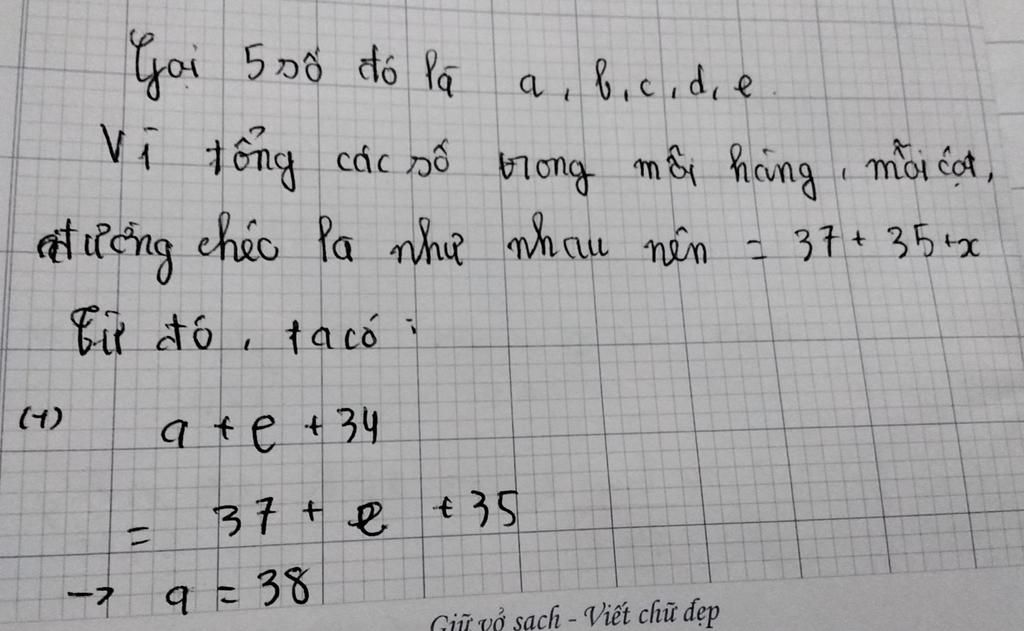 Gọi 5 số đó là a, b, c, d, e.
Vì tổng các số trong mỗi hàng, mỗi cột,
đường chéo là như nhau nên = 37 + 35 + x
Từ đó, ta có:
(1) a + e + 34
= 37 + e + 35
→ a = 38
Giữ vở sạch - Viết chữ đẹp